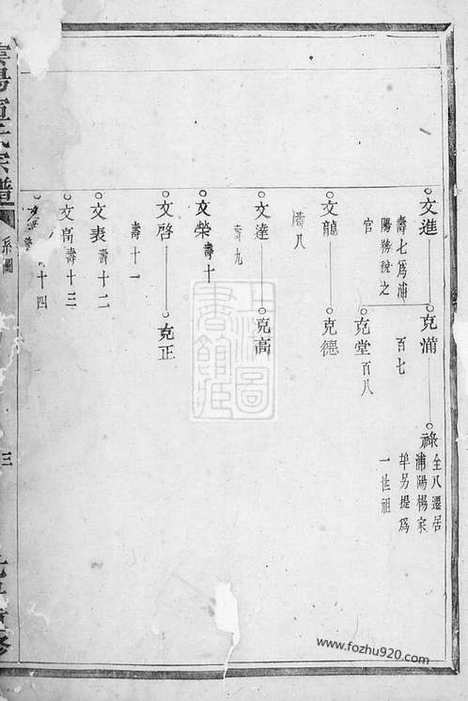 文進
壽七為浦
陽務稅之
官
克滿
百七
祿
全八遷居
浦陽楊家
埠另提為
一世祖
克堂
百八
文龍
壽八
克德
文達
壽九
克高
文榮
壽十
文啓
壽十一
克正
文表
壽十二
文高
壽十三
十四
宗譜
系圖
三
修
www.fozhu920.com